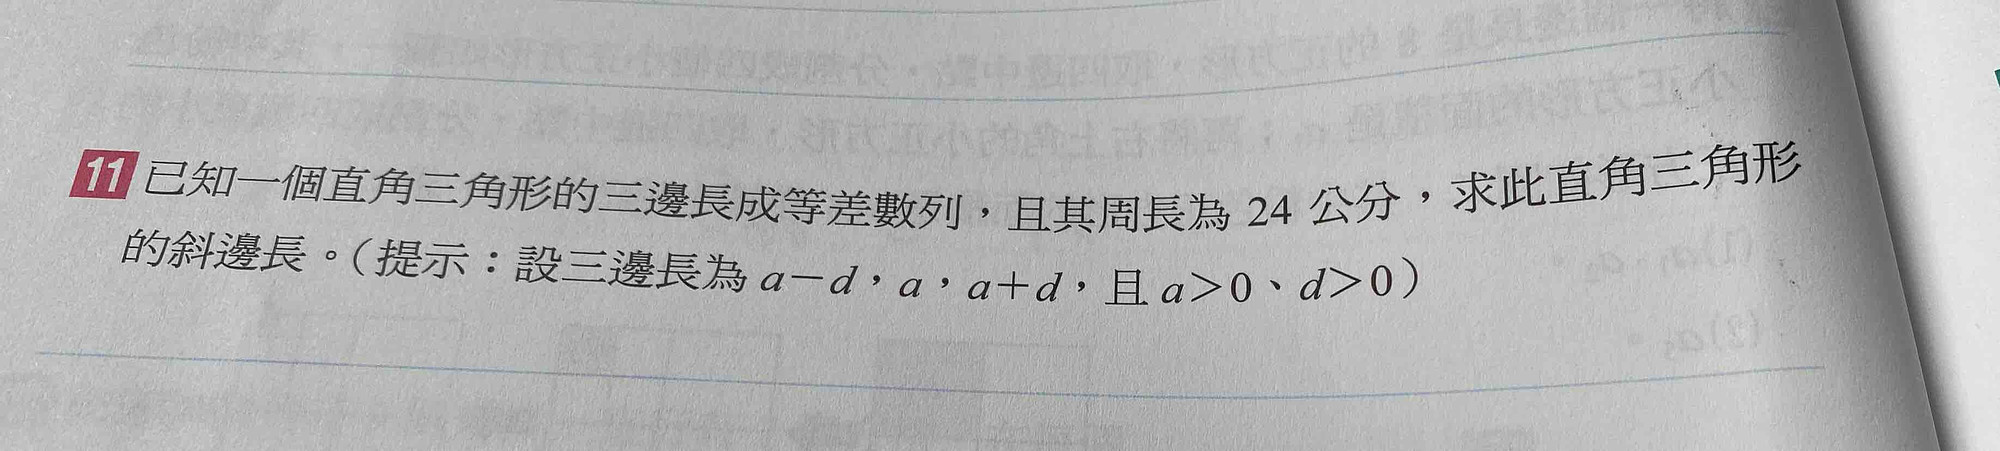 11 已知一個直角三角形的三邊長成等差數列，且其周長為 24 公分，求此直角三角形
的斜邊長。（提示：設三邊長為 a－d，a，a＋d，且 a＞0、d＞0）